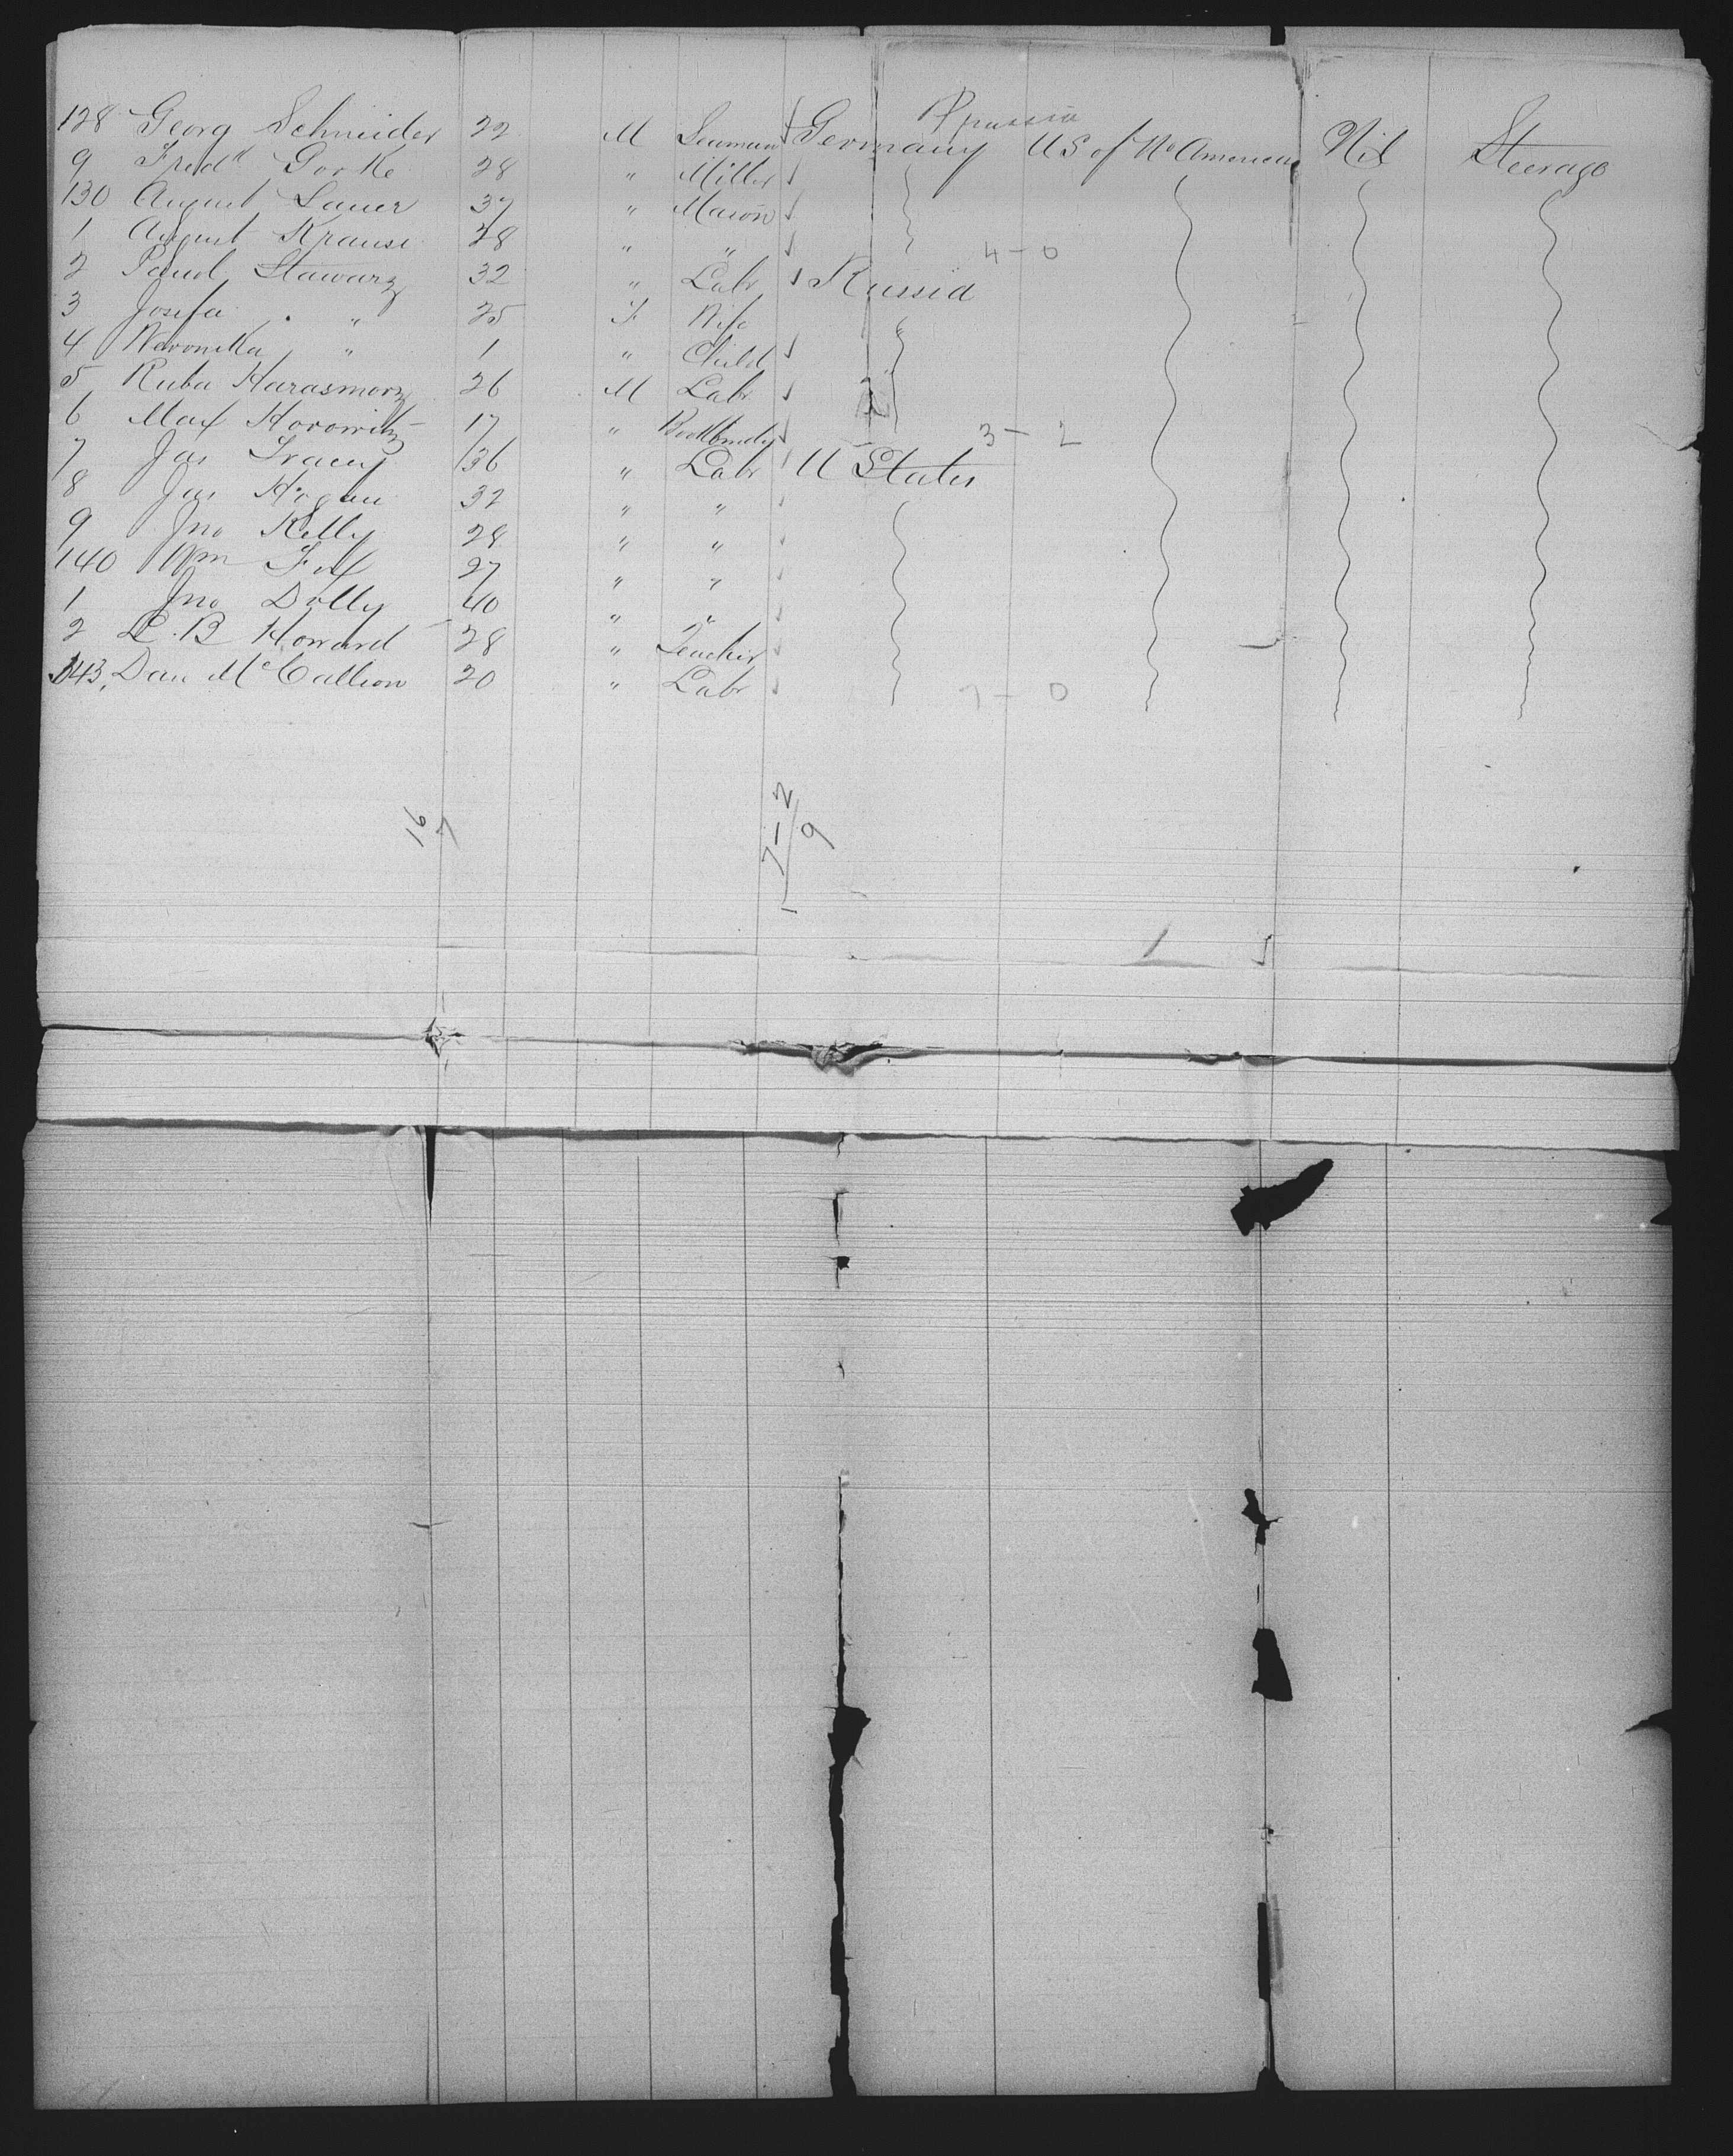 Prussia
128 Georg Schneider 22 M Seaman Germany U S of No America Nil Steerage
9 Fredk Gorke 28 " Miller
130 August Sauer 37 " Mason
1 August Krause 28 " " 4 - 0
2 Stawarz 32 " Labr Russia
3 Josefa " 25 F Wife
4 Weronika " 1 " Child
5 Kuba Harasmorz 26 M Labr
6 Max Horowitz 17 " Bookbinder 3 - 2
7 Jas Tracey 36 " Labr U States
8 Jas Hogan 32 " "
9 Jno Kelly 28 " "
140 Wm Fox 27 " "
1 Jno Dolly 40 " "
2 L. B Howard 28 " Teacher
143. Dan McCallion 20 " Labr 7 - 0
16
7
7 - 2
9